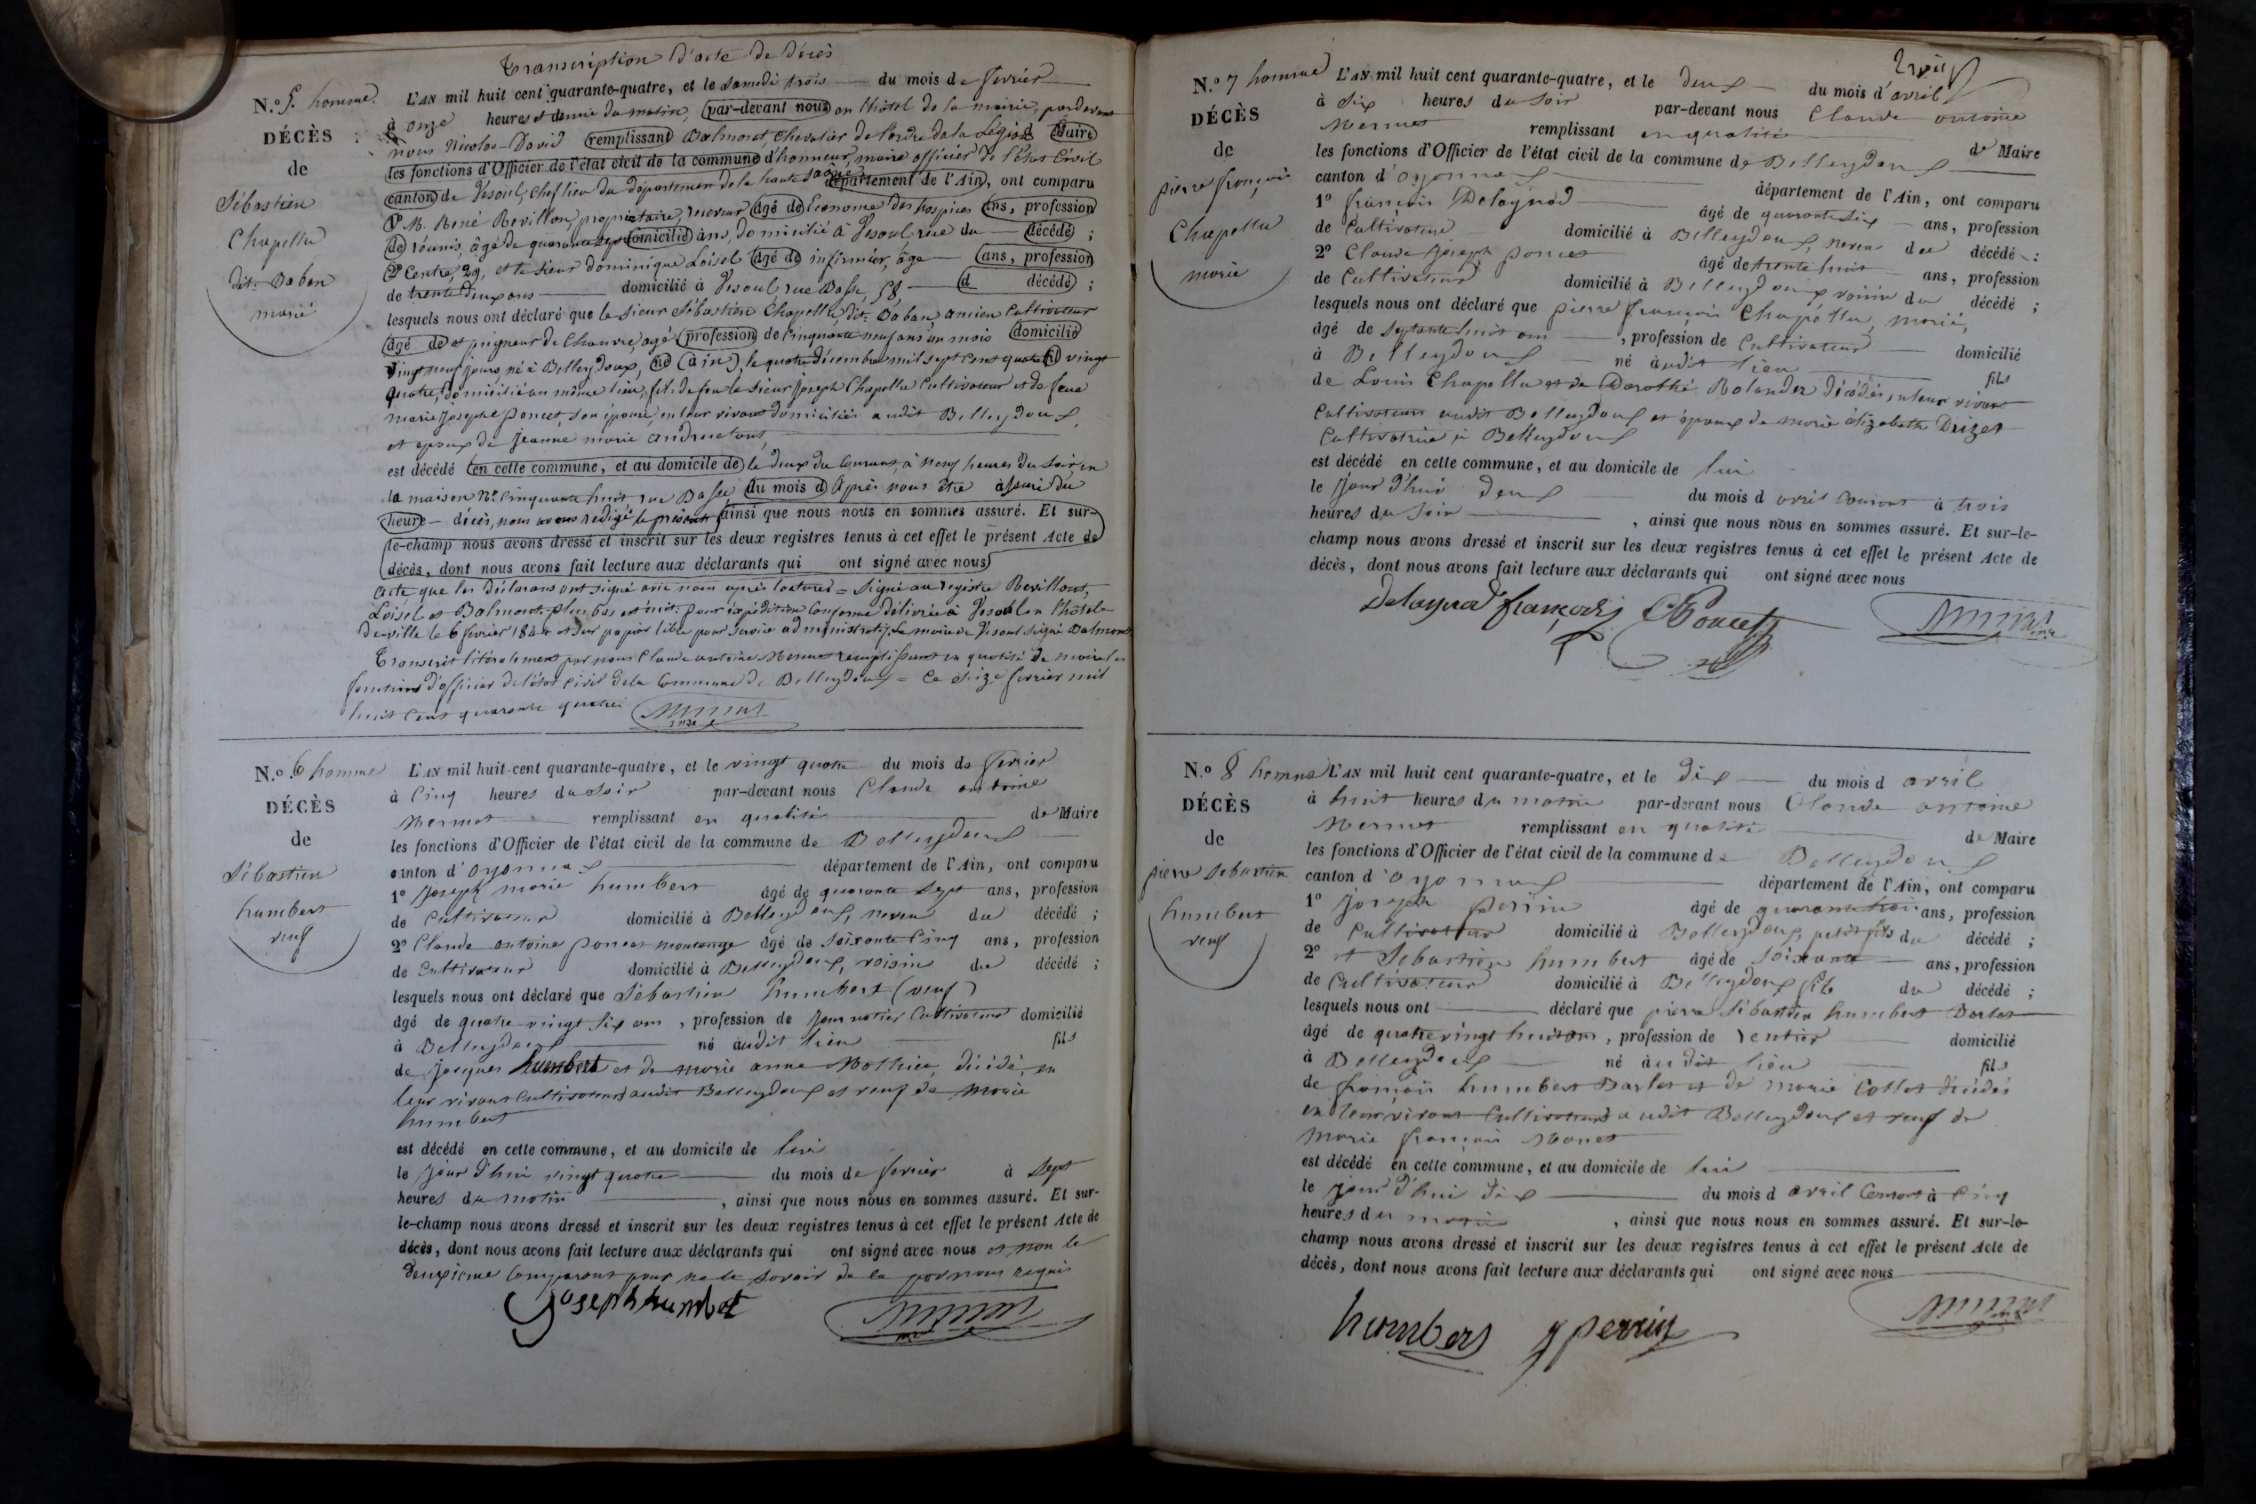 Transcription d'acte de Décès
N.o 5. homme.
DÉCÈS
de
Sébastien
Chapellu
dit Daban
marié
L'AN mil huit cent quarante-quatre, et le samedi trois du mois de février
à onze heures et demie du matin, par-devant nous en l'hôtel de la mairie, par devant
nous Nicolas-David remplissant Balmont, chevalier de l'ordre de la Légion Maire
les fonctions d'Officier de l'état civil de la commune d'honneur, maire officier de l'état civil
canton de Vesoul, chef lieu du département de la haute Saone département de l'Ain, ont comparu
1o M. René Revillon, propriétaire, receveur âgé de Econome des hospices ans, profession
de réunis, âgé de quarante sept domicilié ans, domicilié à Vesoul rue du décédé ;
2o Centre, 29, et le sieur dominique Loisel âgé de infirmier, âgé ans, profession
de trente deux ans domicilié à Vesoul rue Basse, 58 d décédé ;
lesquels nous ont déclaré que le sieur Sébastien Chapellu, dit Daban ancien Cultivateur
âgé de et peigneur de Chanvre, âgé profession de Cinquante neuf ans un mois domicilié
Vingt neuf jours, né à Belleydoux, né (ain), le quatre décembre mil sept cent quatre vingt
quatre, domicilié au même lieu, fils de feu le sieur Joseph Chapellu Cultivateur et de feue
marie Josephe poncet, son épouse, en leur vivant domiciliés audit Belleydoux,
et époux de jeanne marie andruetan,
est décédé en cette commune, et au domicile de le deux du Courant, à neuf heures du soir, en
la maison No. Cinquante huit rue Basse, du mois d Après nous être assuré du
heure décès, nous avons rédigé le présent ainsi que nous nous en sommes assuré. Et sur-
le-champ nous avons dressé et inscrit sur les deux registres tenus à cet effet le présent Acte de
décès, dont nous avons fait lecture aux déclarants qui ont signé avec nous
acte que les Déclarans ont signé avec nous après lecture = Signé au registre Revillon,
Loisel et Balmont. plus bas est écrit: pour expédition Conforme Délivrée à Vesoul en l'hôtel
De ville le 6 février 1844 et sur papier libre pour service administratif. Le maire de Vesoul signé Balmont
Transcrit litéralement par nous Claude antoine Mermet remplissant en qualité de maire les
fonctions d'officier de l'état civil de la Commune de Belleydoux = Ce seize février mil
huit cent quarante quatre
Mermet
N.o 6 homme
DÉCÈS
de
Sébastien
humbert
veuf
L'AN mil huit cent quarante-quatre, et le vingt quatre du mois de février
à Cinq heures du soir par-devant nous Claude antoine
Mermet remplissant en qualité de Maire
les fonctions d'Officier de l'état civil de la commune de Belleydoux
canton d'oyonnax département de l'Ain, ont comparu
1o Joseph marie humbert âgé de quarante sept ans, profession
de Cultivateur domicilié à Belleydoux, neveu du décédé ;
2o Claude antoine poncet montange âgé de soixante Cinq ans, profession
de Cultivateur domicilié à Belleydoux, voisin du décédé ;
lesquels nous ont déclaré que Sébastien humbert (veuf)
âgé de quatre vingt six ans, profession de Journalier Cultivateur domicilié
à Belleydoux né audit lieu fils
de jacques humbert et de marie anne Mathieu, décédés, en
leur vivant Cultivateurs audit Belleydoux et veuf de Marie
humbert
est décédé en cette commune, et au domicile de lui
le Jour d'hui vingt quatre du mois de février à sept
heures du matin, ainsi que nous nous en sommes assuré. Et sur-
le-champ nous avons dressé et inscrit sur les deux registres tenus à cet effet le présent Acte de
décès, dont nous avons fait lecture aux déclarants qui ont signé avec nous et non le
deuxième Comparant pour ne le savoir de ce par nous requis
Joseph humbert
Mermet
N.o 7 homme
DÉCÈS
de
pierre françois
Chapellu
marié
L'AN mil huit cent quarante-quatre, et le deux du mois d'avril
à six heures du soir par-devant nous Claude antoine
Mermet remplissant en qualité de Maire
les fonctions d'Officier de l'état civil de la commune de Belleydoux
canton d'oyonnax département de l'Ain, ont comparu
1o françois Delagnod âgé de quarante six ans, profession
de Cultivateur domicilié à Belleydoux, neveu du décédé ;
2o Claude Joseph poncet âgé de trente huit ans, profession
de Cultivateur domicilié à Belleydoux voisin du décédé ;
lesquels nous ont déclaré que pierre françois Chapellu, marié,
âgé de septante huit ans, profession de Cultivateur domicilié
à Belleydoux né audit lieu fils
de Louis Chapellu et de Dorothé Rolandez décédés, en leur vivant
Cultivateurs audit Belleydoux et époux de marie élizabeth Druet
Cultivatrice à Belleydoux
est décédé en cette commune, et au domicile de lui
le Jour d'hui deux du mois d avril Courant à trois
heures du soir, ainsi que nous nous en sommes assuré. Et sur-le-
champ nous avons dressé et inscrit sur les deux registres tenus à cet effet le présent Acte de
décès, dont nous avons fait lecture aux déclarants qui ont signé avec nous
Delagnod françois Poncet
Mermet
N.o 8 homme
DÉCÈS
de
pierre sebastien
humbert
veuf
L'AN mil huit cent quarante-quatre, et le dix du mois d avril
à huit heures du matin par-devant nous Claude antoine
Mermet remplissant en qualité de Maire
les fonctions d'Officier de l'état civil de la commune de Belleydoux
canton d'oyonnax département de l'Ain, ont comparu
1o Joseph perrin âgé de quarante trois ans, profession
de Cultivateur domicilié à Belleydoux, petit fils du décédé ;
2o et Sébastien humbert âgé de soixante ans, profession
de Cultivateur domicilié à Belleydoux fils du décédé ;
lesquels nous ont déclaré que pierre Sébastien humbert Darlot
âgé de quatre vingt huit ans, profession de rentier domicilié
à Belleydoux né audit lieu fils
de françois humbert Darlot et de marie Collet décédés
en leur vivant Cultivateurs audit Belleydoux et veuf de
Marie françoise Monet
est décédé en cette commune, et au domicile de lui
le jour d'hui dix du mois d avril Courant à cinq
heures du matin, ainsi que nous nous en sommes assuré. Et sur-le-
champ nous avons dressé et inscrit sur les deux registres tenus à cet effet le présent Acte de
décès, dont nous avons fait lecture aux déclarants qui ont signé avec nous
humbert J perrin
Mermet